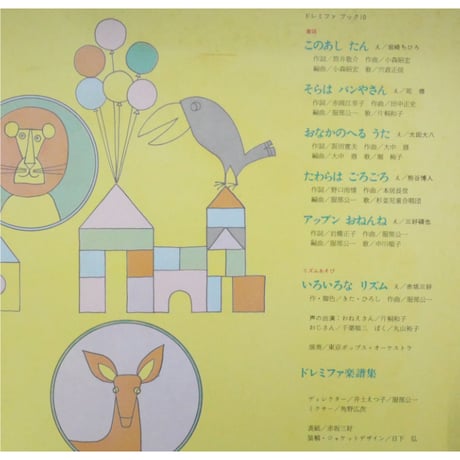 ドレミファ ブック10
童謡
このあし たん え／岩崎ちひろ
作詞／筒井敬介 作曲／小森昭宏
編曲／小森昭宏 歌／宍倉正信
そらは パンやさん え／
作詞／赤岡江里子 作曲／田中正史
編曲／服部公一 歌／片桐和子
おなかのへる うた え／太田大八
作詞／阪田寛夫 作曲／大中恩
編曲／大中恩 歌／堀絢子
たわらは ごろごろ え／熊谷博人
作詞／野口雨情 作曲／本居長世
編曲／服部公一 歌／杉並児童合唱団
アップン おねんね え／三好碩也
作詞／岩橋正子 作曲／服部公一
編曲／服部公一 歌／中川順子
リズムあそび
いろいろな リズム え／赤坂三好
作・脚色／きた・ひろし 作曲／服部公一
声の出演：おねえさん／片桐和子
おじさん／千葉順二 ぼく／丸山裕子
演奏／東京ポップス・オーケストラ
ドレミファ楽譜集
ディレクター／井土えつ子／服部公一
ミクサー／角野広次
表紙／赤坂三好
装幀・ジャケットデザイン／日下弘